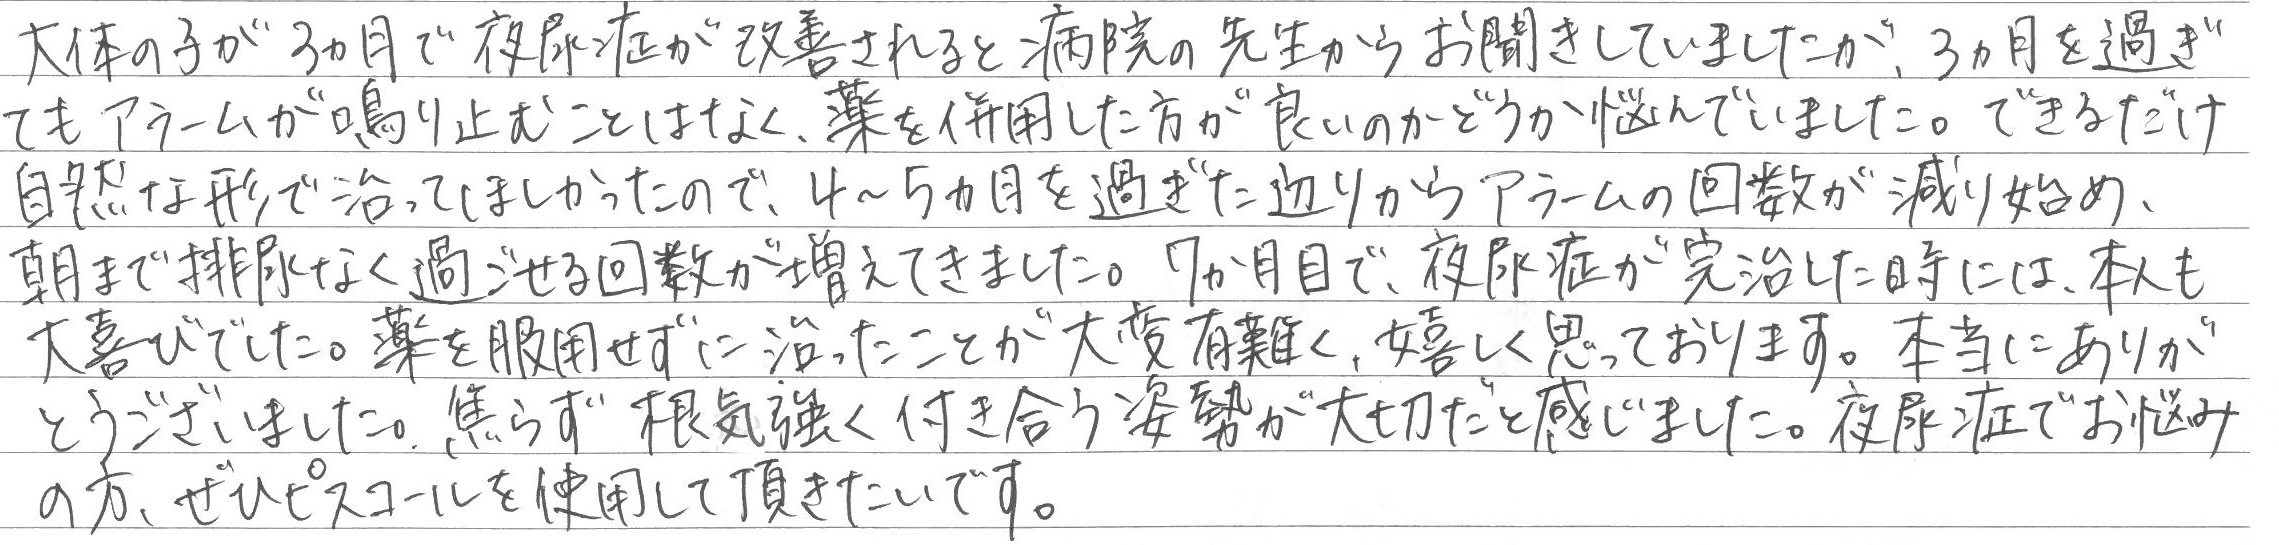 大体の子が3ヵ月で夜尿症が改善されると病院の先生からお聞きしていましたが、3ヵ月を過ぎ
てもアラームが鳴り止むことはなく、薬を併用した方が良いのかどうか悩んでいました。できるだけ
自然な形で治ってほしかったので、4～5ヵ月を過ぎた辺りからアラームの回数が減り始め、
朝まで排尿なく過ごせる回数が増えてきました。7か月目で、夜尿症が完治した時には、本人も
大喜びでした。薬を服用せずに治ったことが大変有難く、嬉しく思っております。本当にありが
とうございました。焦らず根気強く付き合う姿勢が大切だと感じました。夜尿症でお悩み
の方、ぜひピスコールを使用して頂きたいです。